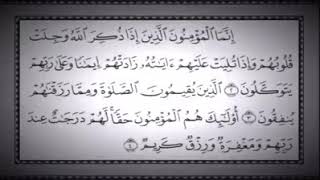 إِنَّمَا ٱلْمُؤْمِنُونَ ٱلَّذِينَ إِذَا ذُكِرَ ٱللَّهُ وَجِلَتْ
قُلُوبُهُمْ وَإِذَا تُلِيَتْ عَلَيْهِمْ ءَايَٰتُهُۥ زَادَتْهُمْ إِيمَٰنًا وَعَلَىٰ رَبِّهِمْ
يَتَوَكَّلُونَ ٢ ٱلَّذِينَ يُقِيمُونَ ٱلصَّلَوٰةَ وَمِمَّا رَزَقْنَٰهُمْ
يُنفِقُونَ ٣ أُو۟لَٰٓئِكَ هُمُ ٱلْمُؤْمِنُونَ حَقًّا لَّهُمْ دَرَجَٰتٌ عِندَ
رَبِّهِمْ وَمَغْفِرَةٌ وَرِزْقٌ كَرِيمٌ ٤